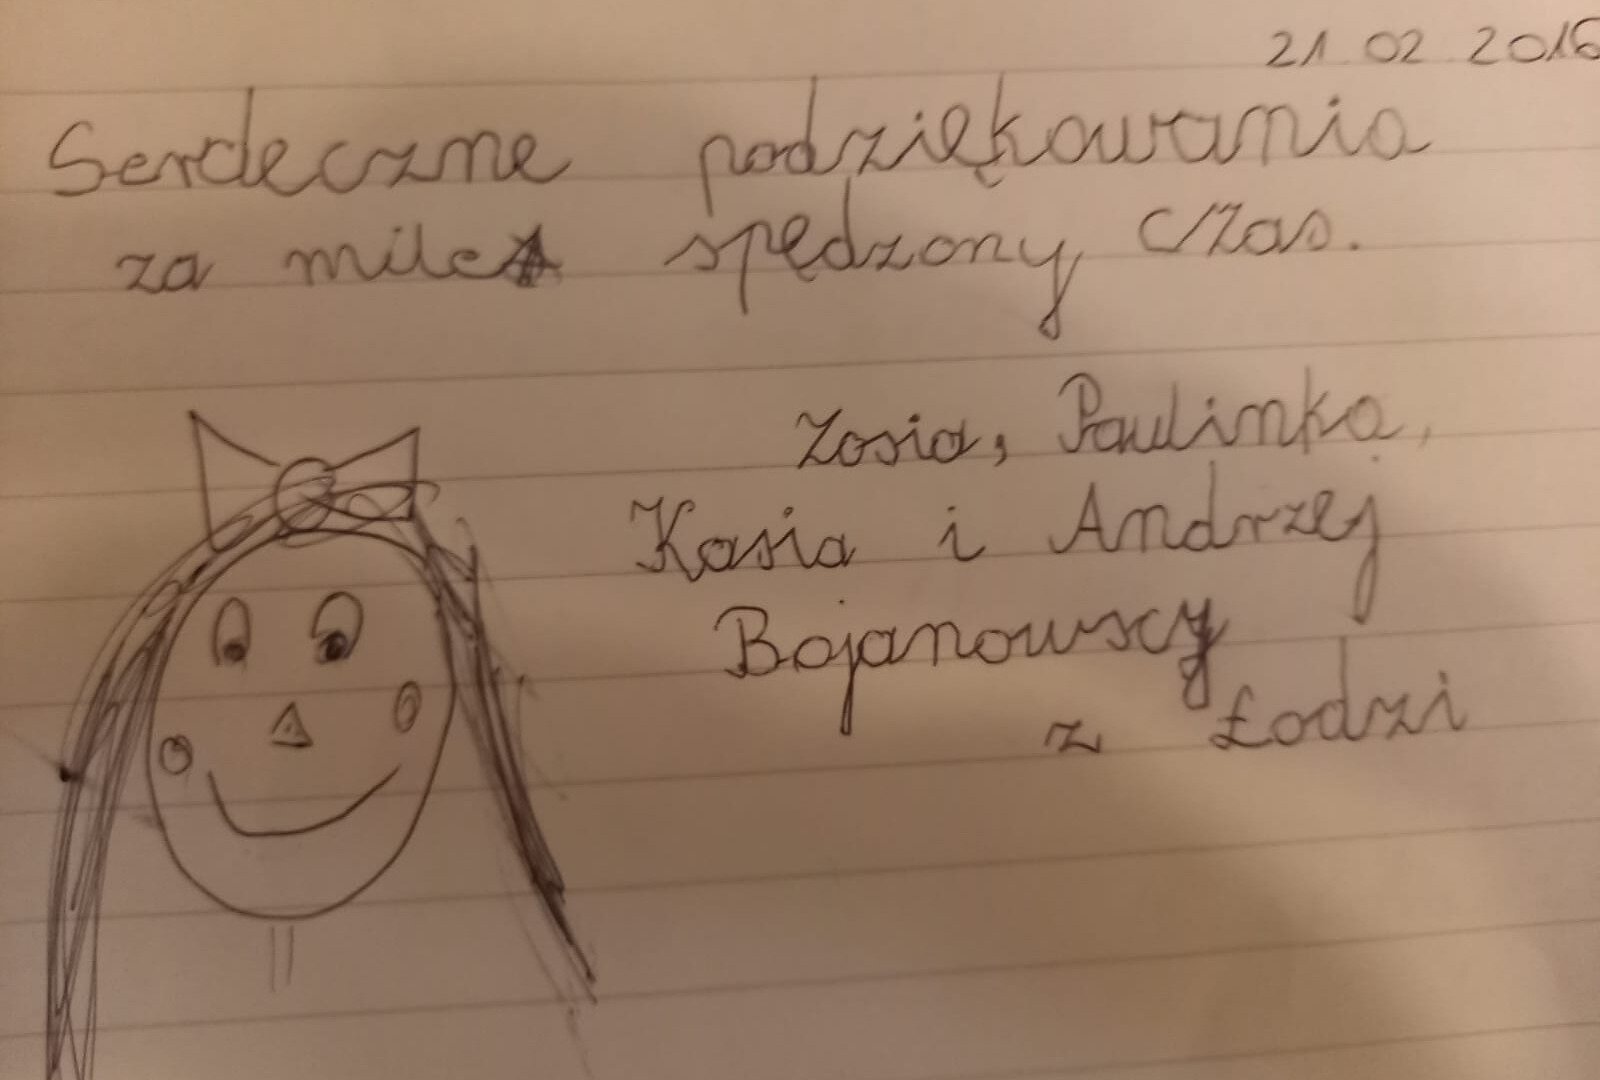 21.02.2016
Serdeczne podziękowania
za mile spędzony czas.
Zosia, Paulinka,
Kasia i Andrzej
Bojanowscy
z Łodzi